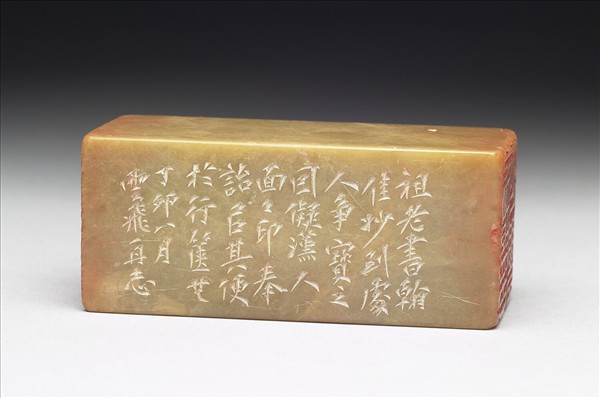 祖老書翰
佳妙到處
人爭寶之
因擬漢人
面々印奉
詒㠯其便
於行篋
丁卯八月
飛再志